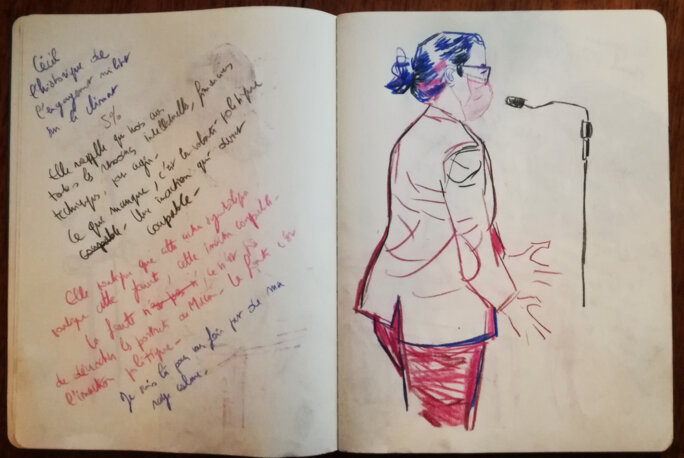 Cécil
l'historique de
l'engagement militant
sur le climat
5%
Elle rappelle que nous avons
toutes les ressources intellectuelles, financières
techniques, pour agir.
Ce que manque, c'est la volonté politique
coupable. Une inaction qui devient
coupable.
Elle explique que cette action symbolique
cette faute, cette inaction coupable.
La faute n'est pas Ce n'est pas
de décrocher le portrait de Macron. La faute c'est
l'inaction politique.
Je suis là pour vous faire part de ma
rage calme.